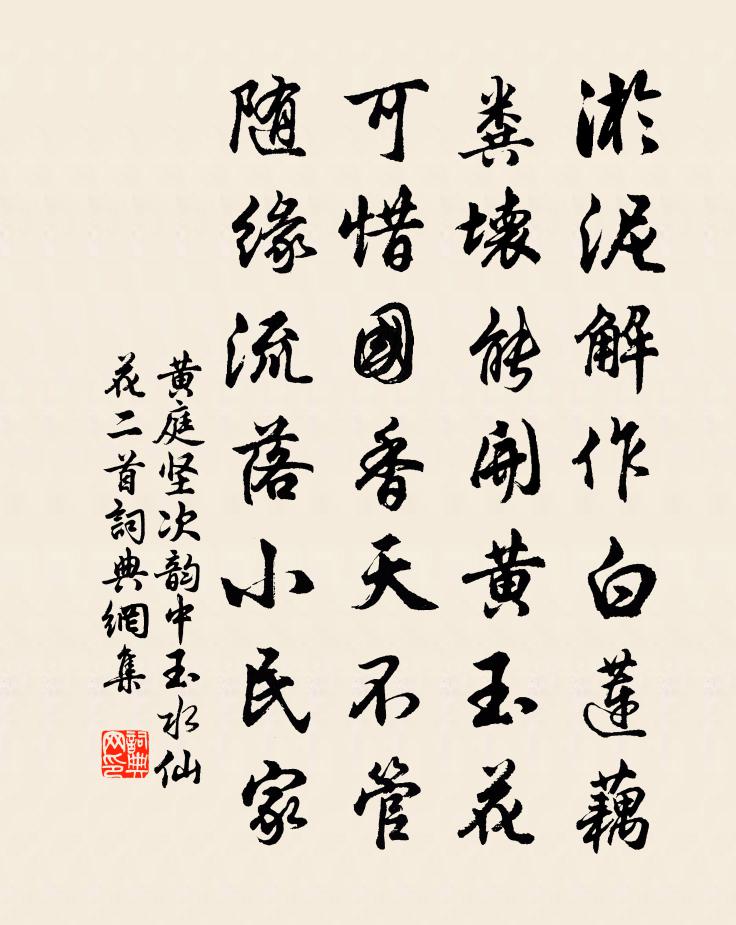 淤泥解作白莲藕
粪壤能開黄玉花
可惜國香天不管
随缘流落小民家
黄庭坚次韵中玉水仙
花二首詞典網集
詞典
网印